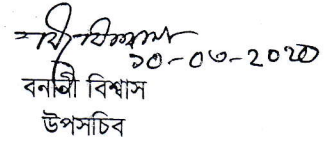 ১০-০৩-2020
বনানী বিশ্বাস
উপসচিব